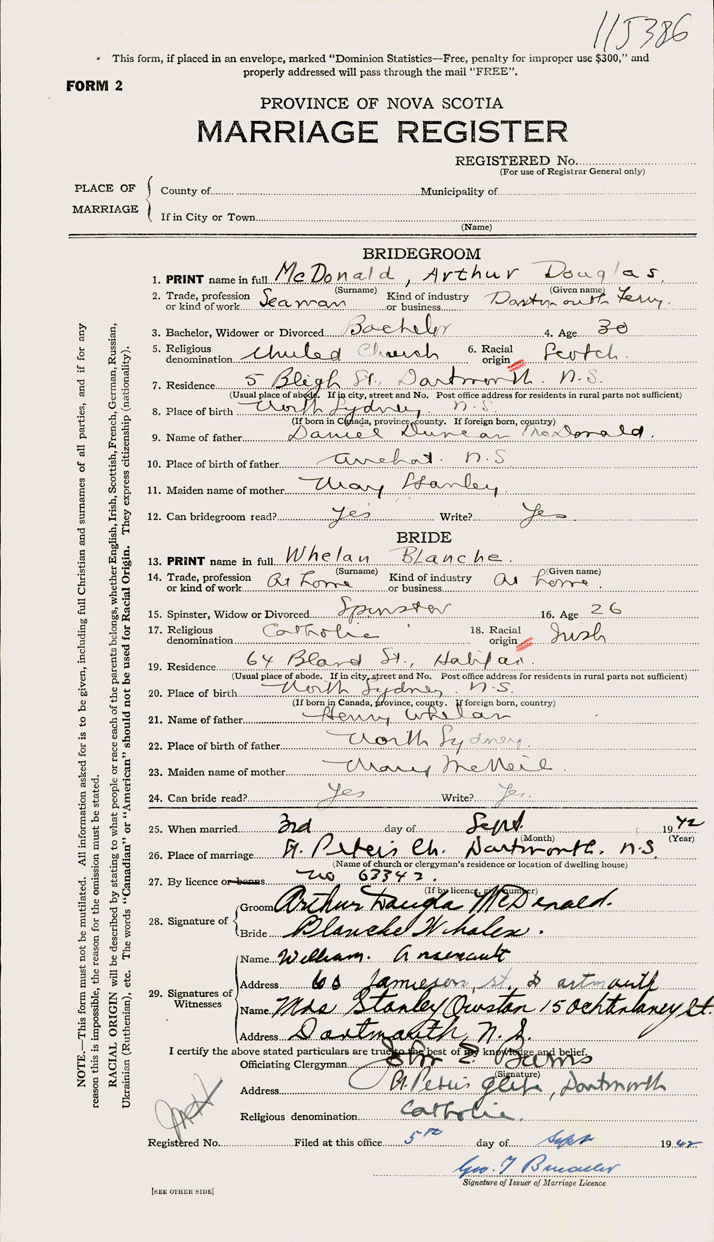 115386
This form, if placed in an envelope, marked "Dominion Statistics—Free, penalty for improper use $300," and
properly addressed will pass through the mail "FREE".
FORM 2
PROVINCE OF NOVA SCOTIA
MARRIAGE REGISTER
REGISTERED No.
(For use of Registrar General only)
PLACE OF MARRIAGE
County of Municipality of
If in City or Town
(Name)
BRIDEGROOM
1. PRINT name in full McDonald, Arthur Douglas.
(Surname) (Given name)
2. Trade, profession or kind of work Seaman Kind of industry or business Dartmouth Ferry.
3. Bachelor, Widower or Divorced Bachelor 4. Age 30
5. Religious denomination United Church 6. Racial origin Scotch.
7. Residence 5 Bligh St., Dartmouth. N.S.
(Usual place of abode. If in city, street and No. Post office address for residents in rural parts not sufficient)
8. Place of birth North Sydney, N.S.
(If born in Canada, province, county. If foreign born, country)
9. Name of father Daniel Duncan McDonald.
10. Place of birth of father Arichat. N.S
11. Maiden name of mother Mary Hanley
12. Can bridegroom read? Yes Write? Yes
BRIDE
13. PRINT name in full Whelan Blanche.
(Surname) (Given name)
14. Trade, profession or kind of work At home Kind of industry or business At home.
15. Spinster, Widow or Divorced Spinster 16. Age 26
17. Religious denomination Catholic 18. Racial origin Irish
19. Residence 64 Bland St., Halifax.
(Usual place of abode. If in city, street and No. Post office address for residents in rural parts not sufficient)
20. Place of birth North Sydney, N.S.
(If born in Canada, province, county. If foreign born, country)
21. Name of father Henry Whelan
22. Place of birth of father North Sydney.
23. Maiden name of mother Mary McNeil
24. Can bride read? Yes Write? Yes.
25. When married 3rd day of Sept. 1942
(Month) (Year)
26. Place of marriage St. Peter's Ch. Dartmouth. N.S.
(Name of church or clergyman's residence or location of dwelling house)
27. By licence or banns No 63342.
(If by licence, give number)
28. Signature of
Groom Arthur Dougla McDonald.
Bride Blanche Whalen.
29. Signatures of Witnesses
Name William. Arsenault
Address 60 Jamieson st. Dartmouth
Name Mrs Stanley 15 Ochterloney St.
Address Dartmouth N.S.
I certify the above stated particulars are true to the best of my knowledge and belief.
Officiating Clergyman John E. Burns
(Signature)
Address St. Peter's Glebe, Dartmouth
Religious denomination Catholic.
Registered No. Filed at this office 5th day of Sept 1942
Geo. T
Signature of Issuer of Marriage Licence
[SEE OTHER SIDE]
NOTE.—This form must not be mutilated. All information asked for is to be given, including full Christian and surnames of all parties, and if for any
reason this is impossible, the reason for the omission must be stated.
RACIAL ORIGIN will be described by stating to what people or race each of the parents belongs, whether English, Irish, Scottish, French, German, Russian,
Ukrainian (Ruthenian), etc. The words "Canadian" or "American" should not be used for Racial Origin. They express citizenship (nationality).